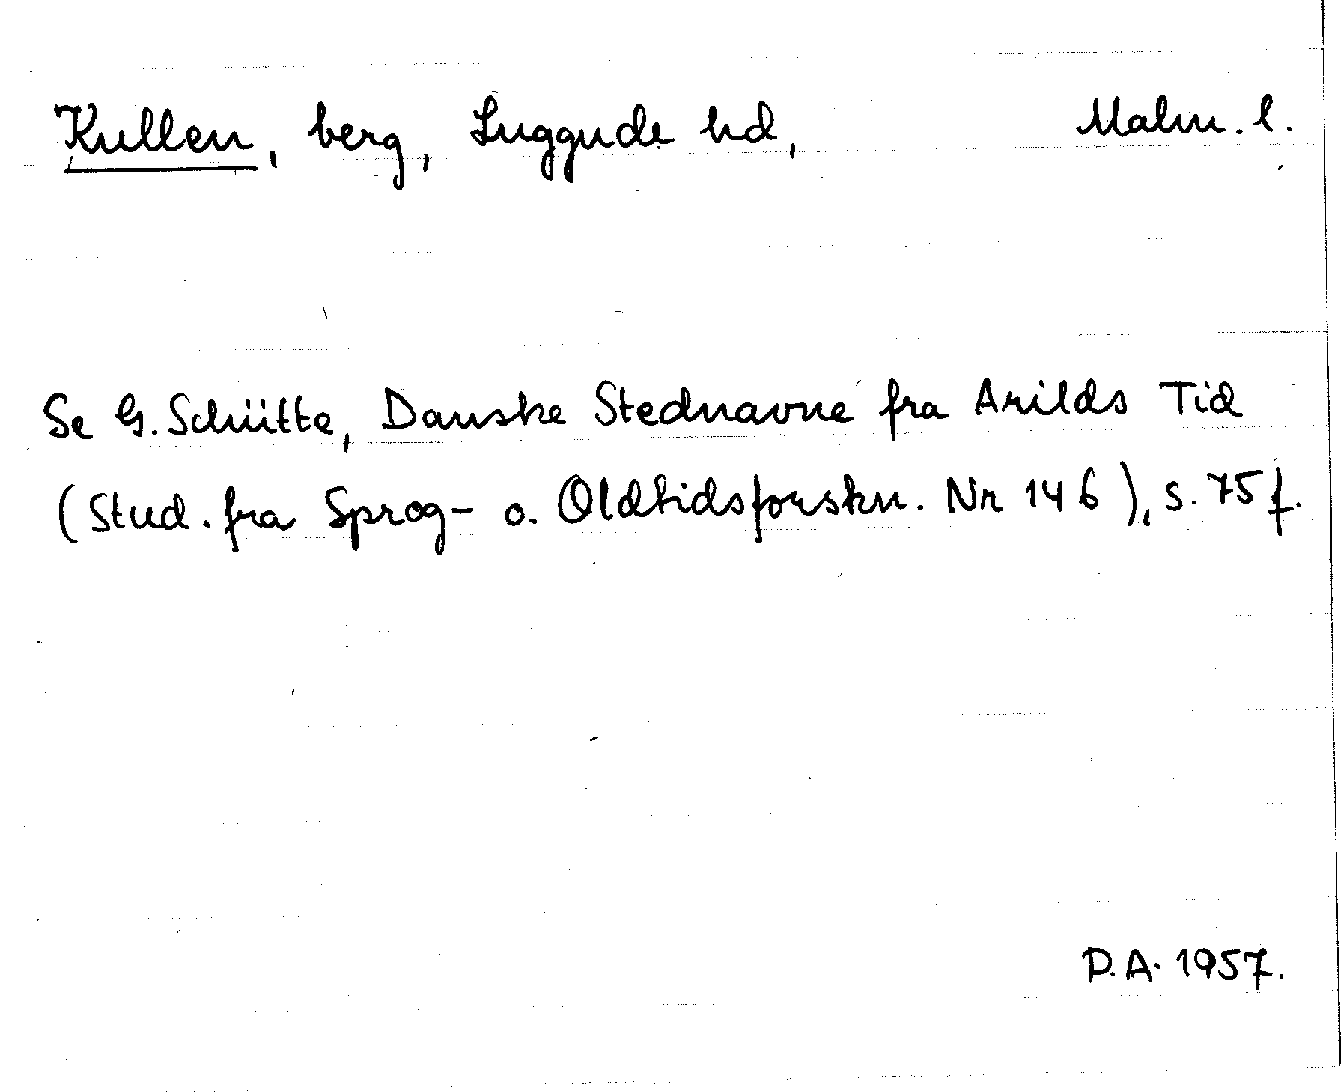 Kullen, berg, Luggude hd, Malm. l.
Se G. Schütte, Danske Stednavne fra Arilds Tid
(Stud. fra Sprog- o. Oldtidsforskn. Nr 146), s. 75 f.
P.A. 1957.